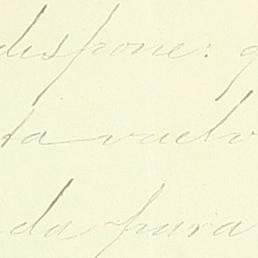 dispone: q
ta vuelv
da para